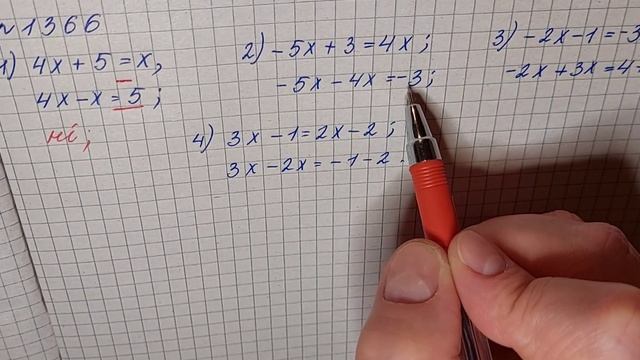 № 1366
1) 4x + 5 = x,
4x - x = 5 ;
ні ;
2) - 5x + 3 = 4x ;
- 5x - 4x = -3 ;
3) - 2x - 1 = -3
-2x + 3x = 4
4) 3x - 1 = 2x - 2 ;
3x - 2x = - 1 - 2 .